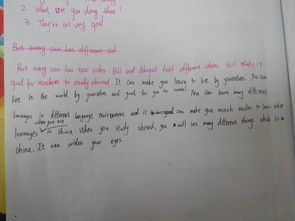 2. What are you doing there!
3. They're all very good.
But every coin has different sid
But every coin has two sides. Bill and Abigail hold different ideas. Bill thinks it
good for students to study abroad. It can make you learn to live by yourselves. You can
live in the world by yourselves and good for you in social. You can learn many different
languages in different language environment and it can make you much easier to learn other
languages when you are in China. When you study abroad, you will see many different things which is in
China. It can widen your eyes.